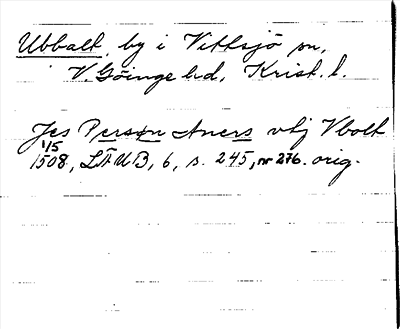 Ubbalt, by i Vittsjö sn,
V. Göinge hd, Krist. l.
Jes Person Aners vtj Vbolt
1/5
1508, LÄUB, 6, s. 245, nr 276. orig.